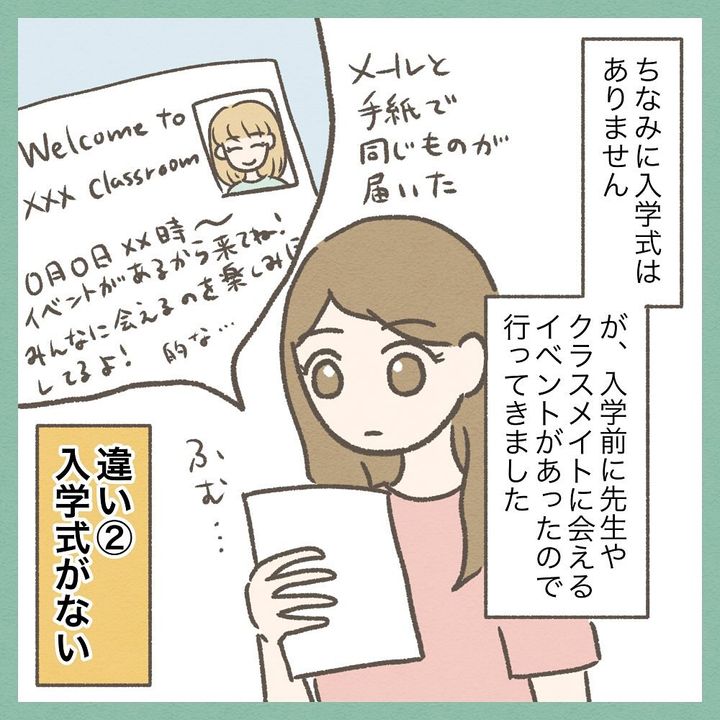 ちなみに入学式は
ありません
が、入学前に先生や
クラスメイトに会える
イベントがあったので
行ってきました
メールと
手紙で
同じものが
届いた
Welcome to
xxx Classroom
〇月〇日 xx時〜
イベントがあるから来てね!
みんなに会えるのを楽しみに
してるよ! 的な…
ふむ…
違い②
入学式がない